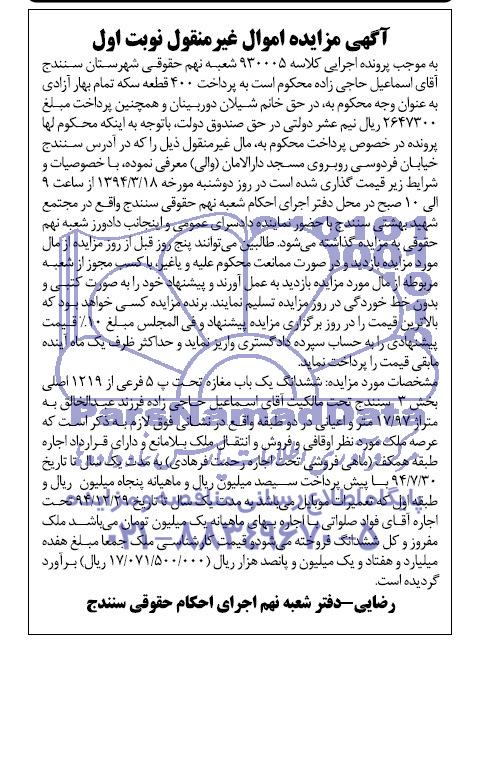 آگهی مزایده اموال غیرمنقول نوبت اول
به موجب پرونده اجرایی کلاسه ۹۳۰۰۰۵ شعبه نهم حقوقی شهرستان سنندج
آقای اسماعیل حاجی زاده محکوم است به پرداخت ۴۰۰ قطعه سکه تمام بهار آزادی
به عنوان وجه محکوم به، در حق خانم شیلان دوربینان و همچنین پرداخت مبلغ
۲۶۴۷۳۰۰ ریال نیم عشر دولتی در حق صندوق دولت، باتوجه به اینکه محکوم لها
پرونده در خصوص پرداخت محکوم به، مال غیرمنقول ذیل را که در آدرس سنندج
خیابان فردوسی روبروی مسجد دارالامان (والی) معرفی نموده، با خصوصیات و
شرایط زیر قیمت گذاری شده است در روز دوشنبه مورخه ۱۳۹۴/۳/۱۸ از ساعت ۹
الی ۱۰ صبح در محل دفتر اجرای احکام شعبه نهم حقوقی سنندج واقع در مجتمع
شهید بهشتی سنندج با حضور نماینده دادسرای عمومی و اینجانب دادورز شعبه نهم
حقوقی به مزایده گذاشته می‌شود. طالبین می‌توانند پنج روز قبل از روز مزایده از مال
مورد مزایده بازدید و در صورت ممانعت محکوم علیه و یاغیر با کسب مجوز از شعبه
مربوطه از مال مورد مزایده بازدید به عمل آورند و پیشنهاد خود را به صورت کتبی و
بدون خط خوردگی در روز مزایده تسلیم نمایند. برنده مزایده کسی خواهد بود که
بالاترین قیمت را در روز برگزاری مزایده پیشنهاد و فی المجلس مبلغ ۱۰٪ قیمت
پیشنهادی را به حساب سپرده دادگستری واریز نماید و حداکثر ظرف یک ماه آینده
مابقی قیمت را پرداخت نماید.
مشخصات مورد مزایده: ششدانگ یک باب مغازه تحت پ ۵ فرعی از ۱۲۱۹ اصلی
بخش ۳ سنندج تحت مالکیت آقای اسماعیل حاجی زاده فرزند عبدالخالق به
متراژ ۱۷/۹۷ متر و اعیانی در دو طبقه واقع در نشانی فوق لازم به ذکر است که
عرصه ملک مورد نظر اوقافی و فروش و انتقال ملک بلامانع و دارای قرارداد اجاره
طبقه همکف (ماهی فروشی تحت اجاره رحمت فرهادی) به مدت یک سال تا تاریخ
۹۴/۷/۳۰ با پیش پرداخت سیصد میلیون ریال و ماهیانه پنجاه میلیون ریال و
طبقه اول که تعمیرات موبایل می‌باشد به مدت یک سال تا تاریخ ۹۴/۱۲/۲۹ تحت
اجاره آقای فواد صلواتی با اجاره بهای ماهیانه یک میلیون تومان می‌باشد ملک
مفروز و کل ششدانگ فروخته می‌شود و قیمت کارشناسی ملک جمعا مبلغ هفده
میلیارد و هفتاد و یک میلیون و پانصد هزار ریال (۱۷/۰۷۱/۵۰۰/۰۰۰ ریال) برآورد
گردیده است.
رضایی–دفتر شعبه نهم اجرای احکام حقوقی سنندج
ParsNamadData
پایگاه اطلاع رسانی مناقصه و مزایده
۰۲۱-۸۸۳۴۹۶۷۰-۵